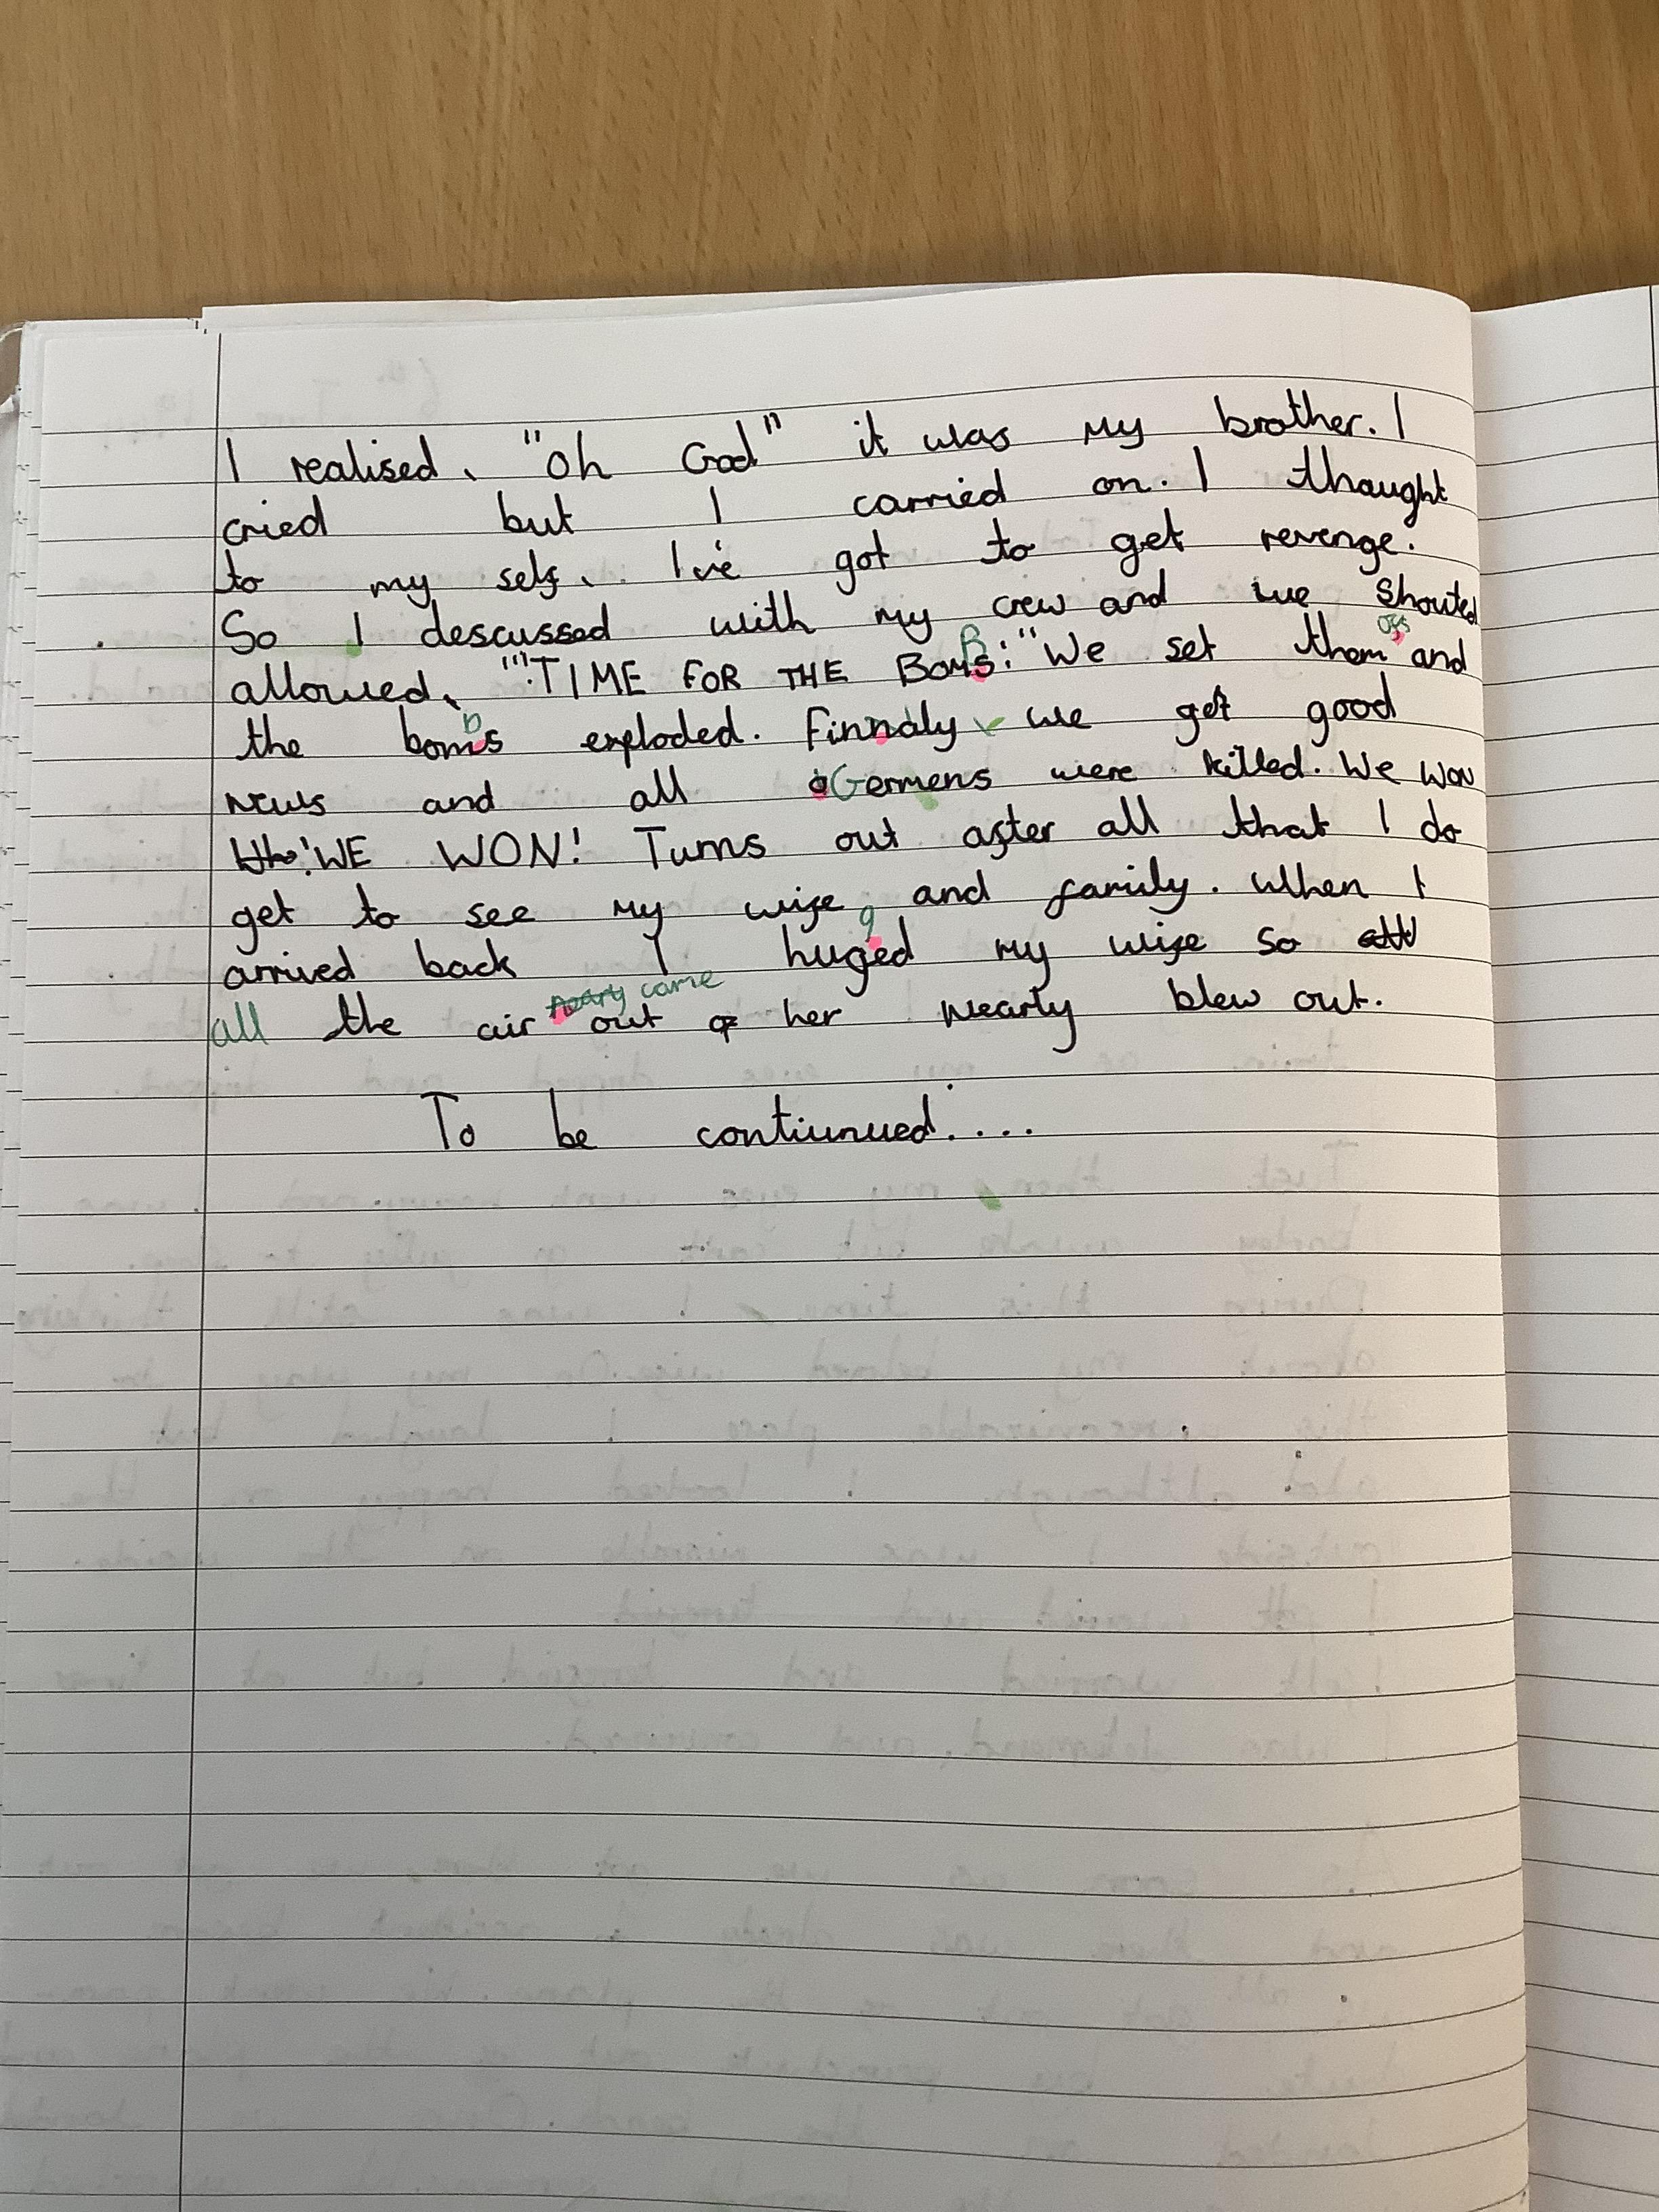 I realised, "Oh God" it was my brother. I
cried but I carried on. I thought
to my self, I've got to get revenge.
So I descussed with my crew and we shouted
allowed, "'TIME FOR THE BOMBS!" We set them off and
the bombs exploded. Finnaly we get good
news and all Germens were killed. We won
WE WON! Turns out after all that I do
get to see my wife and family. When I
arrived back I hugged my wife so
all the air nearly came out of her nearly blew out.
To be contiunued....